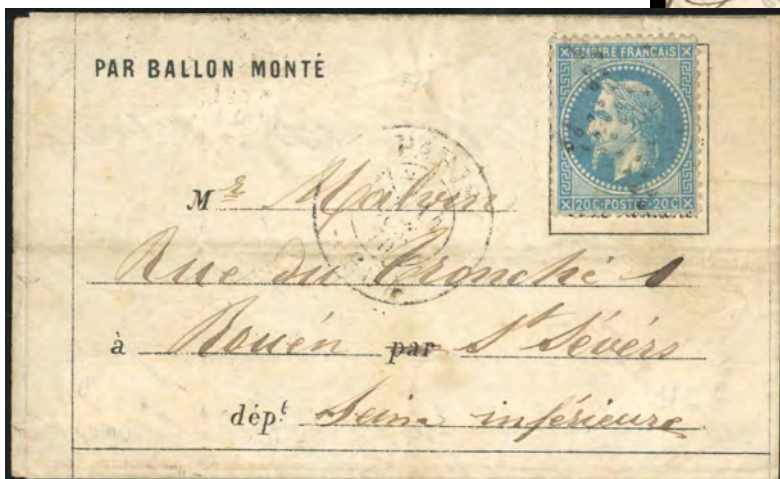 PAR BALLON MONTÉ
EMPIRE FRANCAIS
20C·POSTE·20C
PARIS
Mr Malvin
Rue du Tronché 1
à Rouén par St Sévérs
dépt Seine inférieure